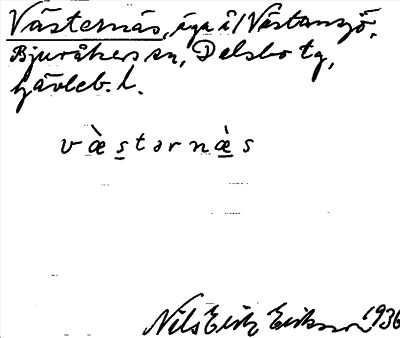 Västernäs, äga i/ Västansjö,
Bjuråkers sn, Delsbo tg,
Gävleb. l.
væ̀stərnæ̀s
Nils Erik Erikson 1936